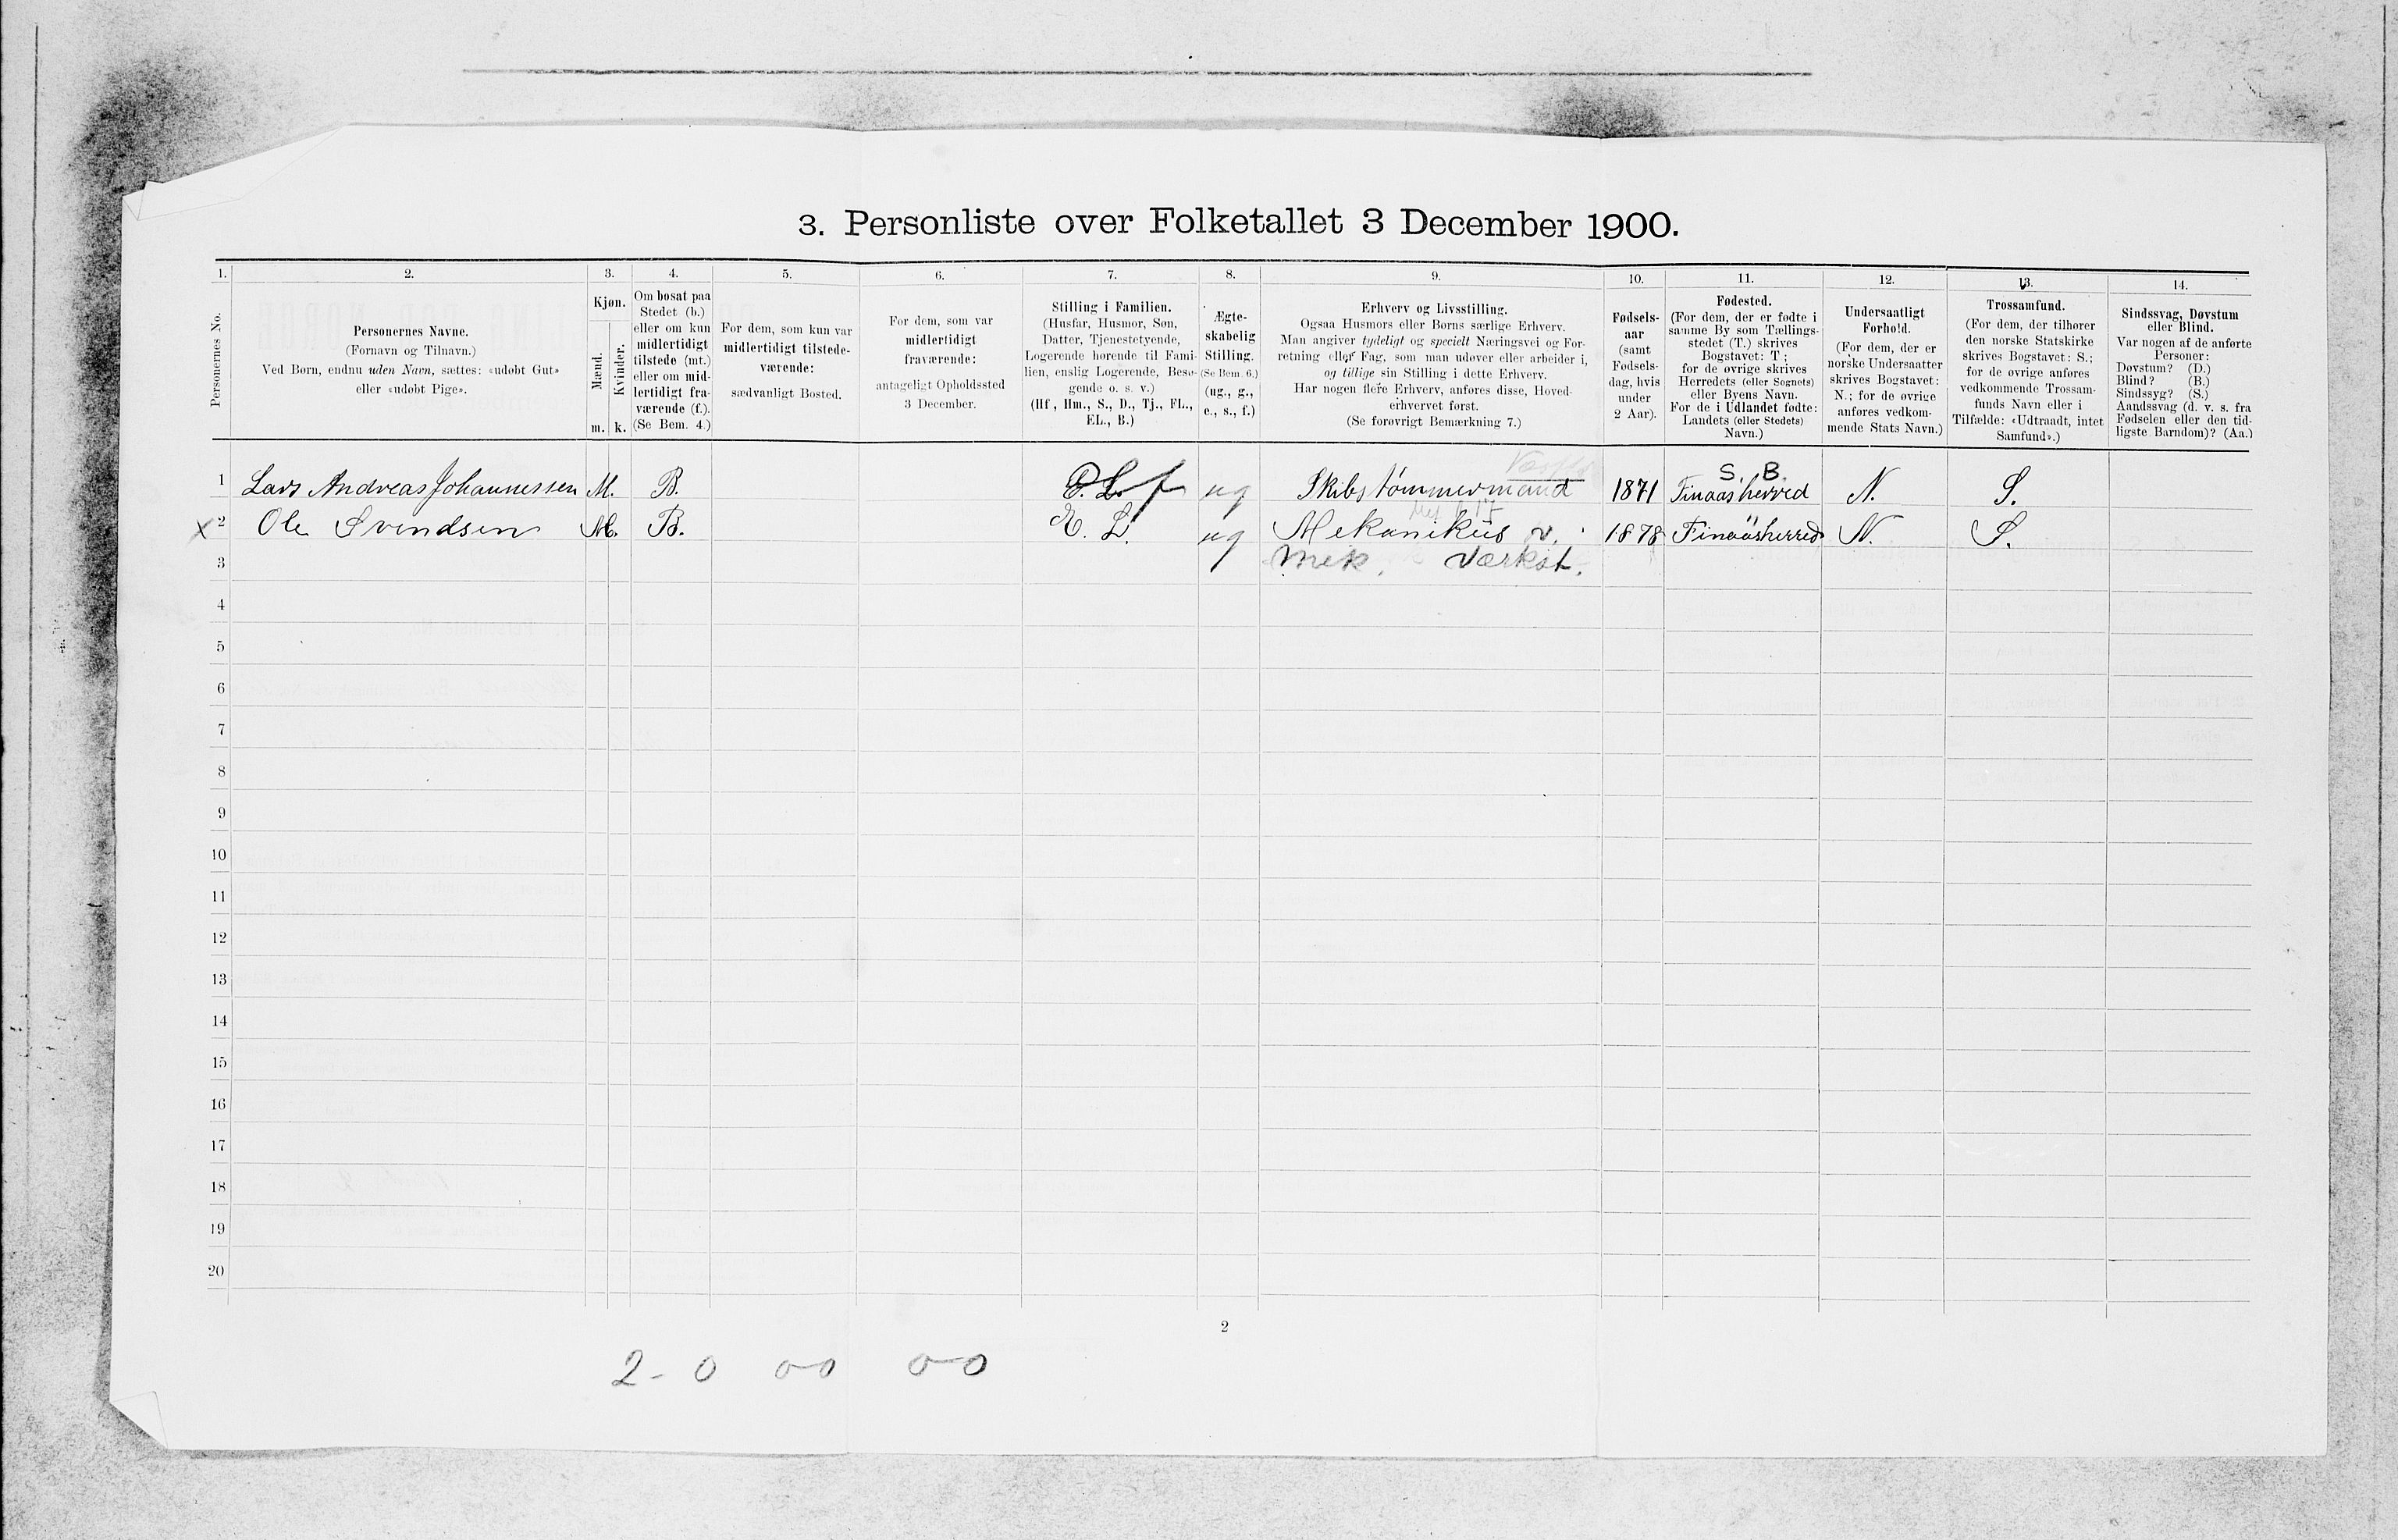 3. Personliste over Folketallet 3 December 1900.
1. 2. 3. 4. 5. 6. 7. 8. 9. 10. 11. 12. 13. 14.
Personernes No.
Personernes Navne.
(Fornavn og Tilnavn.)
Ved Børn, endnu uden Navn, sættes: «udøbt Gut»
eller «udøbt Pige».
Kjøn.
Mænd.
Kvinder.
m. k.
Om bosat paa
Stedet (b.)
eller om kun
midlertidigt
tilstede (mt.)
eller om mid-
lertidigt fra-
værende (f.).
(Se Bem. 4.)
For dem, som kun var
midlertidigt tilstede-
værende:
sædvanligt Bosted.
For dem, som var
midlertidigt
fraværende:
antageligt Opholdssted
3 December.
Stilling i Familien.
(Husfar, Husmor, Søn,
Datter, Tjenestetyende,
Logerende hørende til Fami-
lien, enslig Logerende, Besø-
gende o. s. v.)
(Hf., Hm., S., D., Tj., FL.,
EL., B.)
Ægte-
skabelig
Stilling.
(Se Bem. 6.)
(ug., g.,
e., s., f.)
Erhverv og Livsstilling.
Ogsaa Husmors eller Børns særlige Erhverv.
Man angiver tydeligt og specielt Næringsvei og For-
retning eller Fag, som man udøver eller arbeider i,
og tillige sin Stilling i dette Erhverv.
Har nogen flere Erhverv, anføres disse, Hoved-
erhvervet først.
(Se forøvrigt Bemærkning 7.)
Fødsels-
aar
(samt
Fødsels-
dag, hvis
under
2 Aar).
Fødested.
(For dem, der er fødte i
samme By som Tællings-
stedet (T.) skrives
Bogstavet: T;
for de øvrige skrives
Herredets (eller Sognets)
eller Byens Navn.
For de i Udlandet fødte:
Landets (eller Stedets)
Navn.)
Undersaatligt
Forhold.
(For dem, der er
norske Undersaatter
skrives Bogstavet:
N.; for de øvrige
anføres vedkom-
mende Stats Navn.)
Trossamfund.
(For dem, der tilhører
den norske Statskirke
skrives Bogstavet: S.;
for de øvrige anføres
vedkommende Trossam-
funds Navn eller i
Tilfælde: «Udtraadt, intet
Samfund».)
Sindssvag, Døvstum
eller Blind.
Var nogen af de anførte
Personer:
Døvstum? (D.)
Blind? (B.)
Sindssyg? (S.)
Aandssvag (d. v. s. fra
Fødselen eller den tid-
ligste Barndom)? (Aa.)
S. B.
1 Lars Andreas Johannessen M. B. E. L. f ug Skibstømmermand 1871 Finaasherred N. S.
x 2 Ole Svendsen M. B. E. L. ug Mekanikus v. 1878 Finaasherred N. S.
3 Mek. Værkst.
4
5
6
7
8
9
10
11
12
13
14
15
16
17
18
19
20
2
2 - 0 0-0 0-0